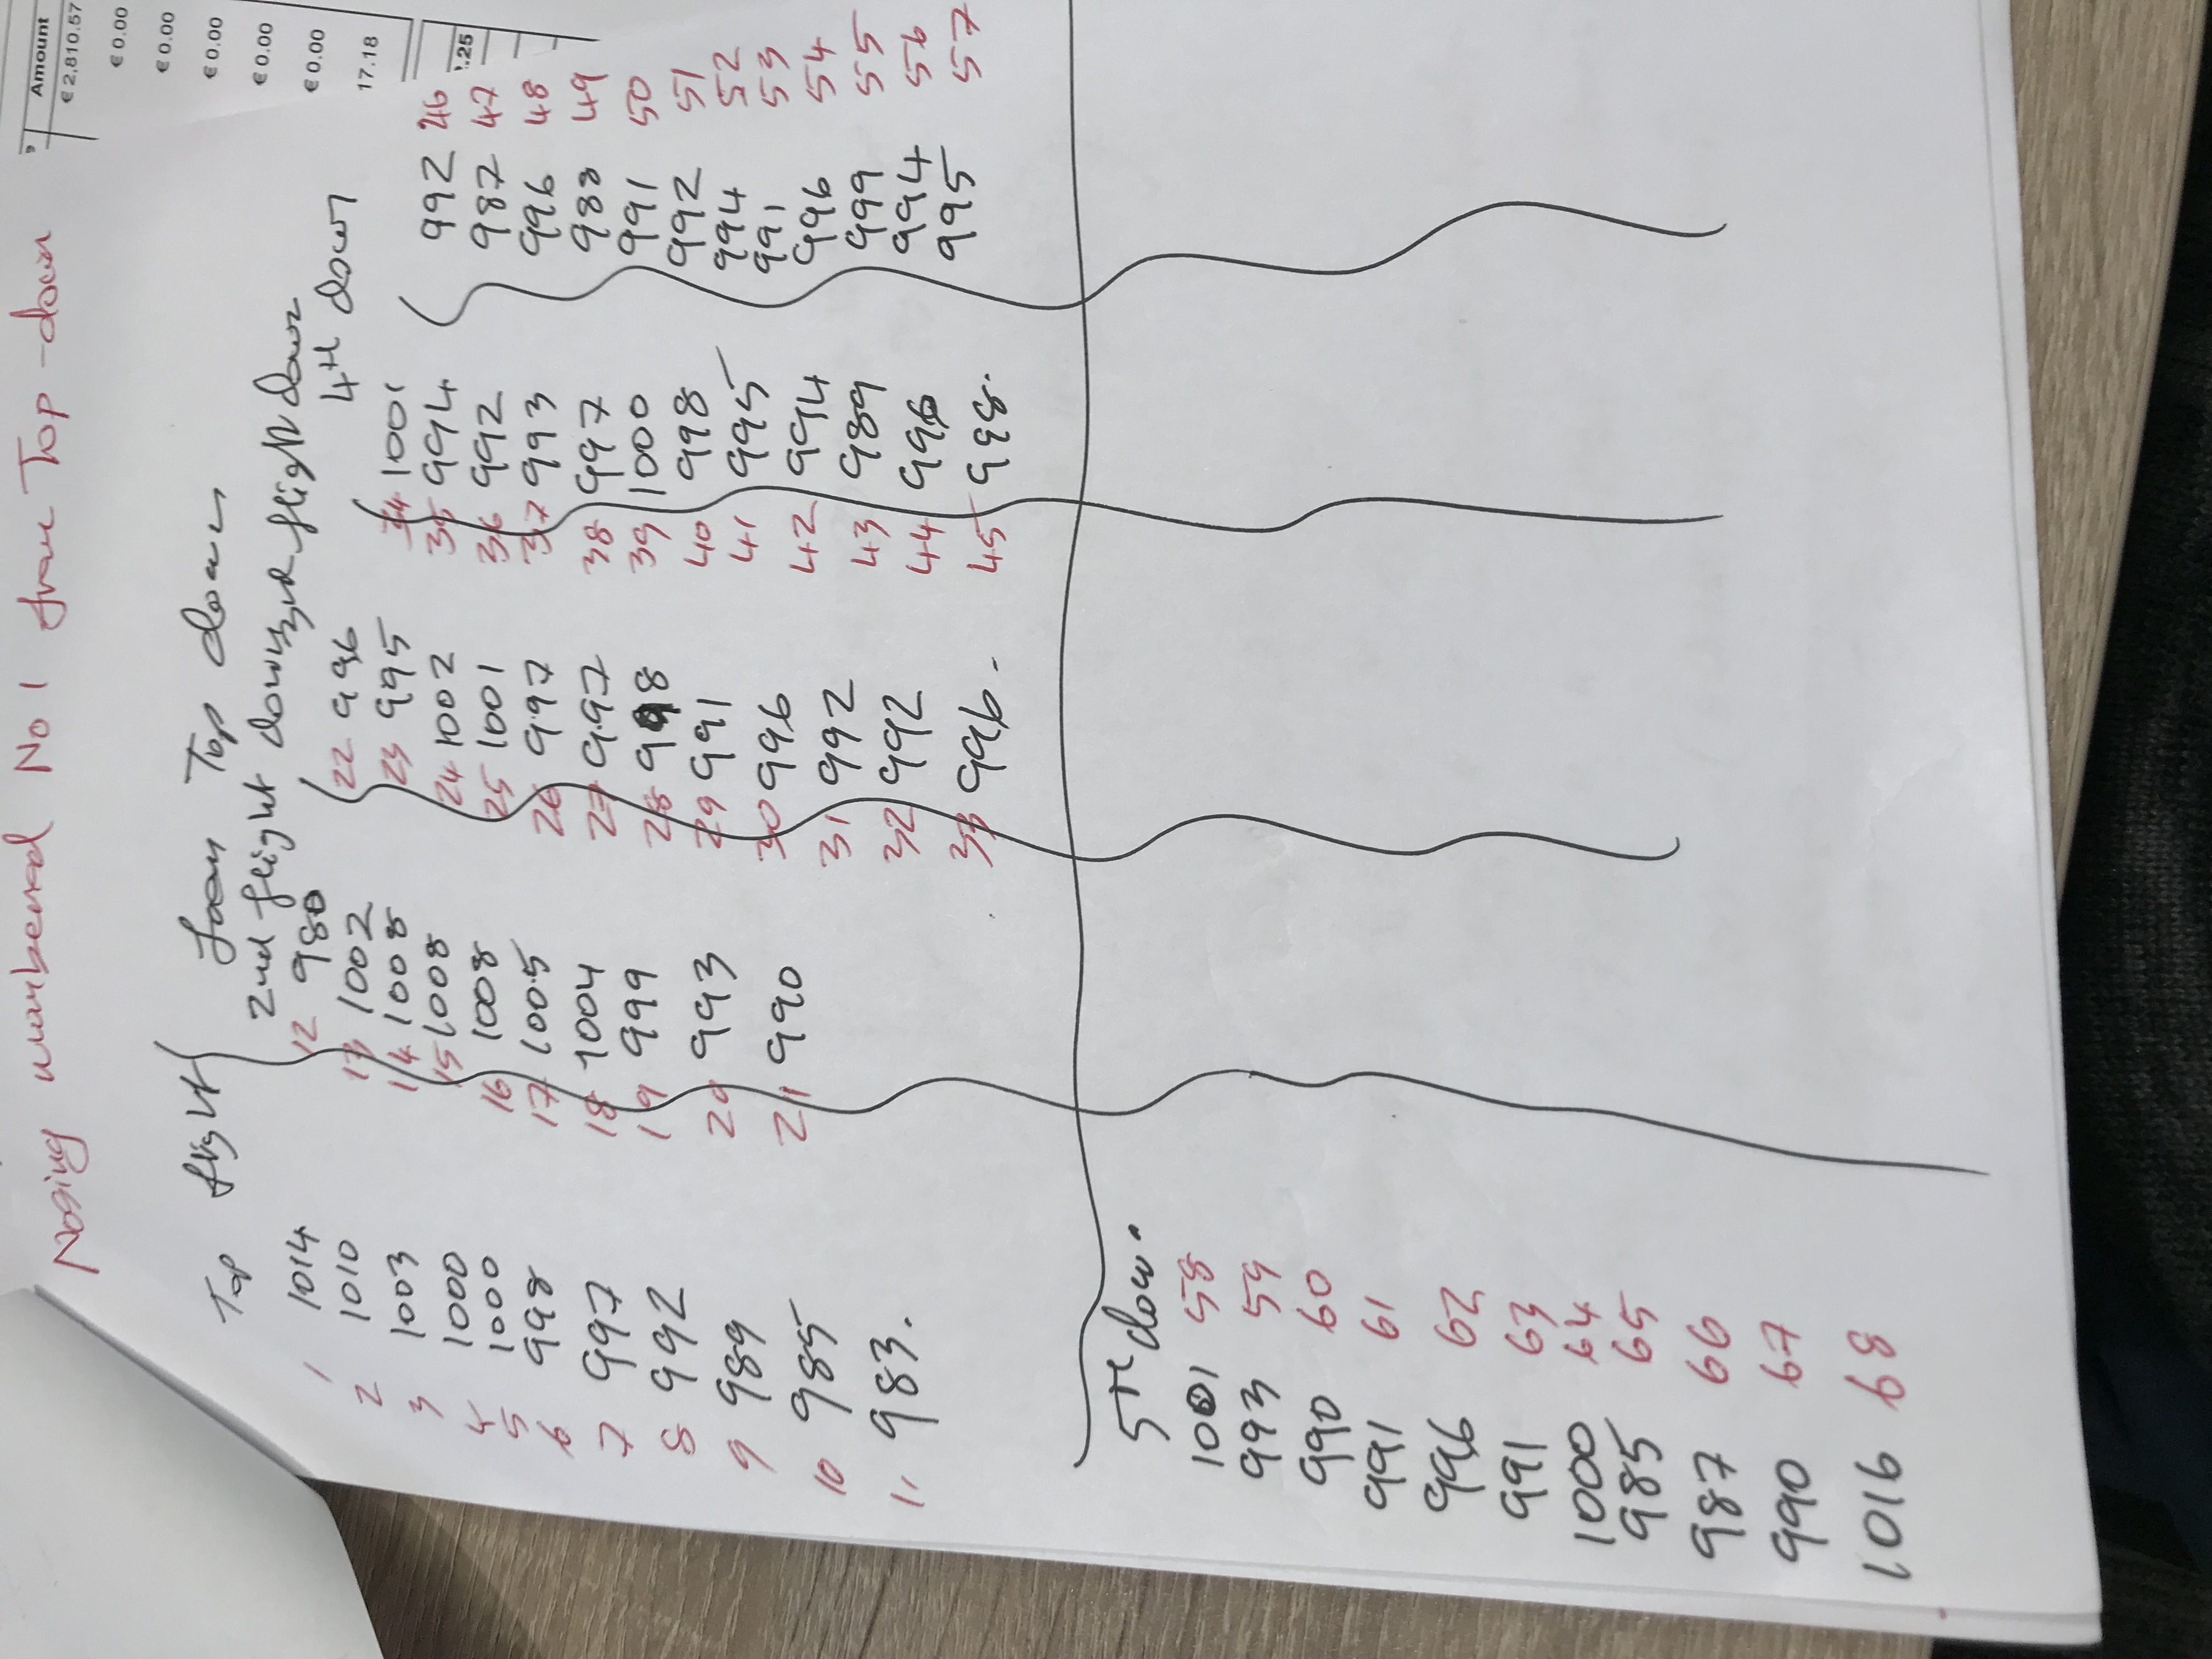 Amount
€ 2,810.57
€ 0.00
€ 0.00
€ 0.00
€ 0.00
€ 0.00
17.18
.25
Nosing numbered No 1 from Top-down
Top flight from Top down
1 1014
2 1010
3 1003
4 1000
5 1000
6 998
7 997
8 992
9 989
10 985
11 983.
2nd flight down
12 980
13 1002
14 1008
15 1008
16 1008
17 1005
18 1004
19 999
20 993
21 990
3rd flight down
22 996
23 995
24 1002
25 1001
26 997
27 997
28 998
29 991
30 996
31 992
32 992
33 996.
4th down
34 1001
35 994
36 992
37 993
38 997
39 1000
40 998
41 995
42 994
43 989
44 996
45 998.
992 46
987 47
996 48
988 49
991 50
992 51
994 52
991 53
996 54
999 55
994 56
995 57
5th down.
1001 58
993 59
990 60
991 61
996 62
991 63
1000 64
985 65
987 66
990 67
1016 68